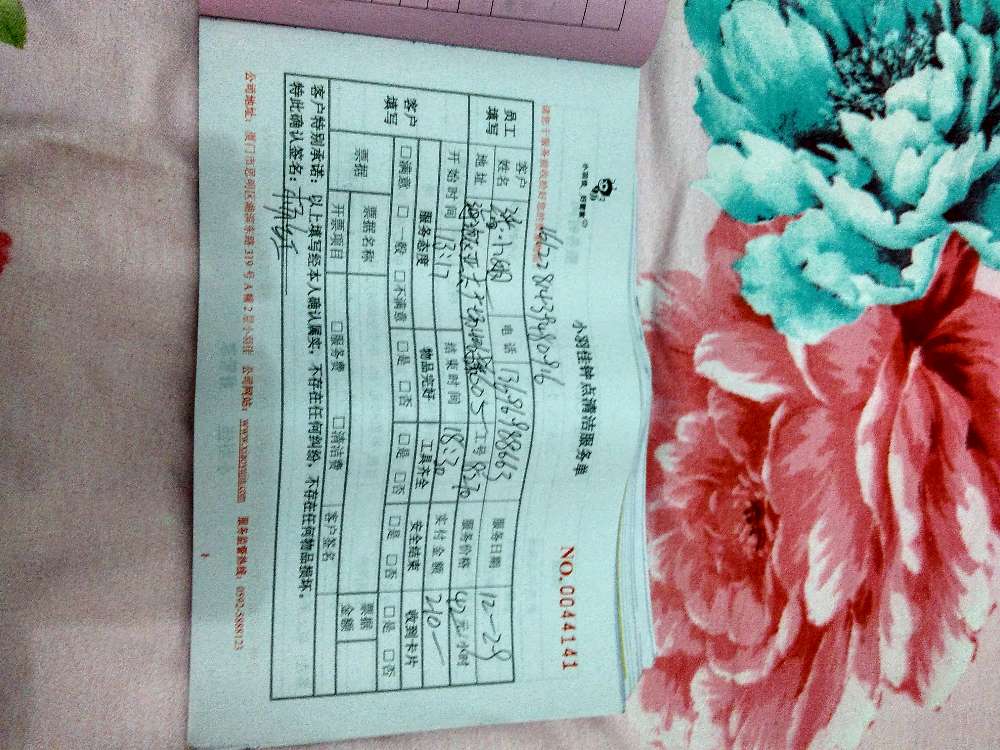 小羽佳 好管家
小羽佳钟点清洁服务单
NO.0044141
16122843948096
员工填写
客户姓名
电话 13696988663
服务日期 12-29
地址
605
工号 8270
服务价格 42元/小时
开始时间 13:17
结束时间 18:30
实付金额 210-
客户填写
服务态度 物品完好 工具齐全 安全结束 收到卡片
□满意 □一般 □不满意 □是 □否 □是 □否 □是 □否 □是 □否
票据
票据名称 □服务费 □清洁费 客户签名 票据金额
开票项目
客户特别承诺：以上填写经本人确认属实，不存在任何纠纷，不存在任何物品损坏。
特此确认签名：
公司地址：厦门市思明区湖滨东路319号A幢2层小羽佳 公司网站：www.xiaoyujia.com 服务监督热线：0592-5888123